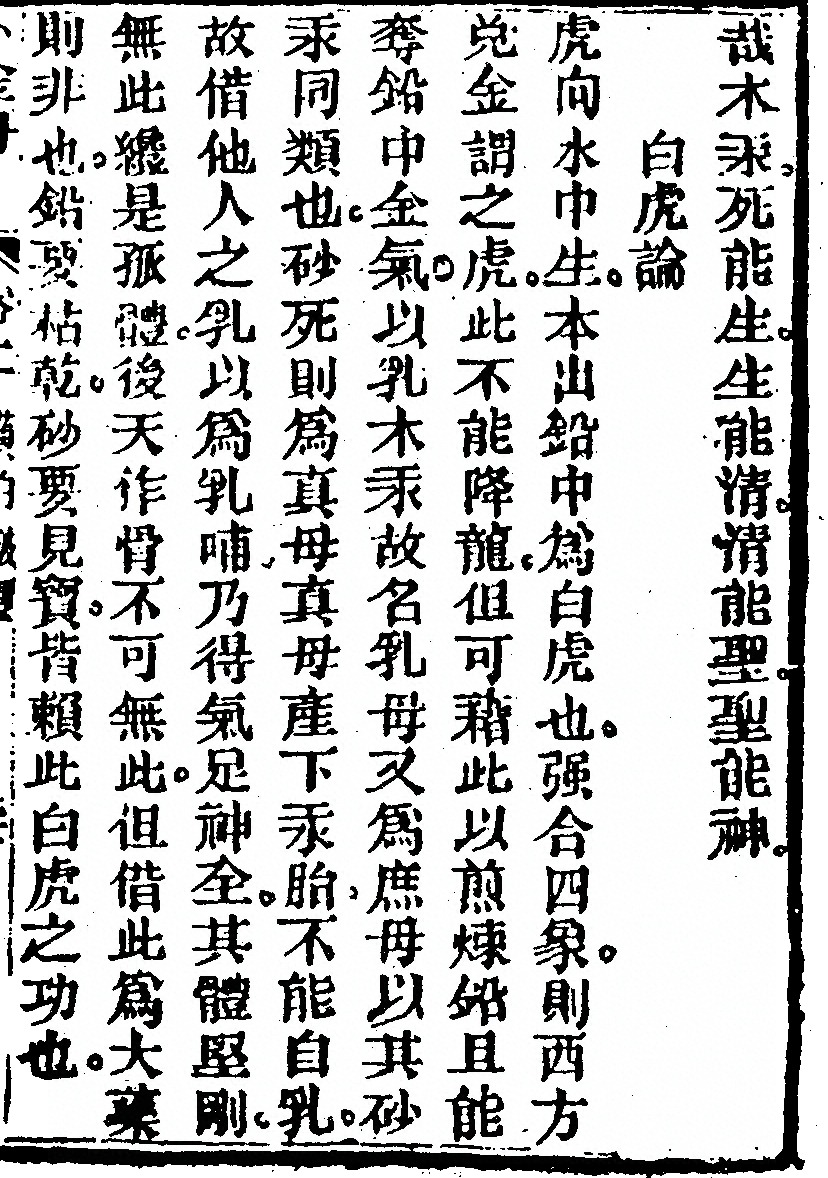 哉木汞死能生生能清清能聖聖能神
白虎論
虎向水中生本出鉛中為白虎也强合四象則西方
兌金謂之虎此不能降龍但可藉此以煎煉鉛且能
奪鉛中金氣以乳木汞故名乳母又為庶母以其砂
汞同類也砂死則為真母真母產下汞胎不能自乳
故借他人之乳以為乳哺乃得氣足神全其體堅剛
無此纔是孤體後天作骨不可無此但借此為大藥
則非也鉛要枯乾砂要見寶皆賴此白虎之功也